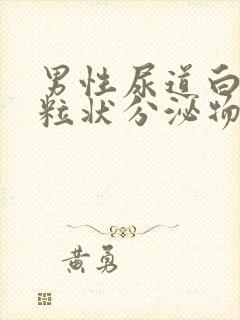 男性尿道白
粒状分泌物
黄勇